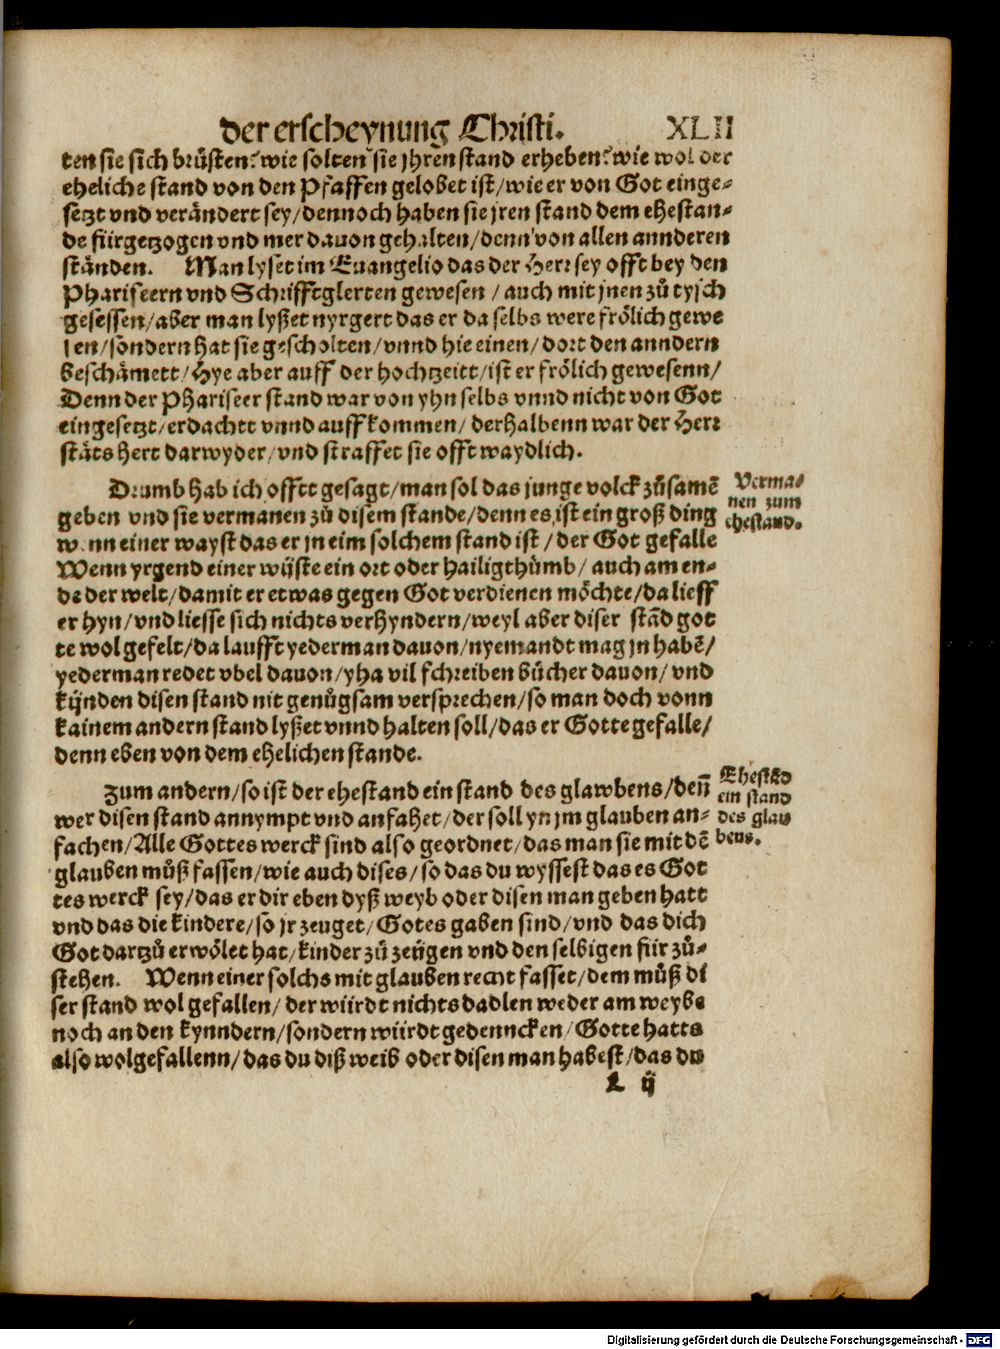 der erscheynung Christi. XLII
ten sie sich brüsten? wie solten sie jhren stand erheben? wie wol der
eheliche stand von den Pfaffen gelobet ist/wie er von Got einge⸗
setzt vnd verändert sey/dennoch haben sie jren stand dem ehestan⸗
de fürgetzogen vnd mer dauon gehalten/denn von allen annderen
ständen. Man lyset im Euangelio das der Herr sey offt bey den
Phariseern vnd Schrifftglerten gewesen / auch mit jnen zů tysch
gesessen/aber man lyßet nyrgert das er da selbs were frölich gewe
sen/sondern hat sie gescholten/vnnd hie einen/dort den anndern
beschämett/Hye aber auff der hochtzeitt/ist er frölich gewesenn/
Denn der Phariseer stand war von yhn selbs vnnd nicht von Got
eingesetzt/erdachtt vnnd auffkommen/derhalbenn war der Herr
stäts hert darwyder/vnd straffet sie offt waydlich.
Drumb hab ich offtt gesagt/man sol das junge volck zůsamē
geben vnd sie vermanen zů disem stande/denn es ist ein groß ding
wenn einer wayst das er jn eim solchem stand ist / der Got gefalle
Wenn yrgend einer wüste ein ort oder hailigthůmb/ auch am en⸗
de der welt/damit er etwas gegen Got verdienen möchte/da lieff
er hyn/vnd liesse sich nichts verhyndern/weyl aber diser stād got
te wol gefelt/da laufft yederman dauon/nyemandt mag jn habē/
yederman redet vbel dauon/yha vil schreiben bücher dauon/vnd
kÿnden disen stand nit genůgsam versprechen/so man doch vonn
kainem andern stand lyßet vnnd halten soll/das er Gotte gefalle/
denn eben von dem ehelichen stande.
Verma⸗
nen zum
ehestand.
Zum andern/so ist der ehestand ein stand des glawbens/deñ
wer disen stand annympt vnd anfahet/der soll yn jm glauben an⸗
fachen/Alle Gottes werck sind also geordnet/das man sie mit dē
glauben můß fassen/wie auch dises/so das du wyssest das es Got
tes werck sey/das er dir eben dyß weyb oder disen man geben hatt
vnd das die kindere/so jr zeuget/Gotes gaben sind/vnd das dich
Got dartzů erwölet hat/kinder zů zeÿgen vnd den selbigen für zů⸗
stehen. Wenn einer solchs mit glauben recht fasset/dem můß di
ser stand wol gefallen/der würdt nichts dadlen weder am weybe
noch an den kynndern/sondern würdt gedenncken/Gotte hatts
also wolgefallenn/das du diß weib oder disen man habest/das du
Ehestād
ein stand
des glau
bens.
L ij
Digitalisierung gefördert durch die Deutsche Forschungsgemeinschaft - DFG